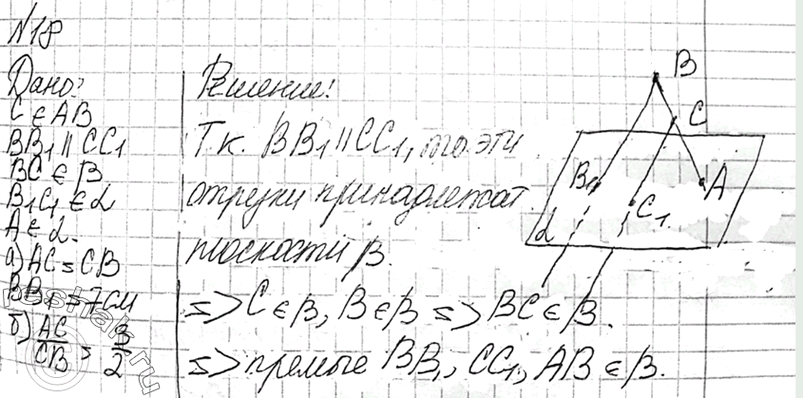 №18
Дано:
C ∈ AB
BB₁ || CC₁
BC ∈ β
B₁C₁ ∈ α
A ∈ α.
а) AC = CB
BB₁ = 7 см
б) AC/CB = 3/2
Решение:
Т.к. BB₁ || CC₁, то эти
отрезки принадлежат
плоскости β.
=> C ∈ β, B ∈ β => BC ∈ β.
=> прямые BB₁, CC₁, AB ∈ β.
B
C
B₁
A
C₁
α